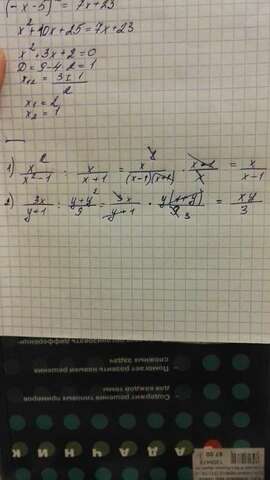 (-x-5) = 7x+23
x²+10x+25=7x+23
x²+3x+2=0
D=9-4·2=1
x₁,₂ = (3±1)/2
x₁=2
x₂=1
1) x²/(x²-1) : x/(x+1) = x²/((x-1)(x+1)) · (x+1)/x = x/(x-1)
2) 3x/(y+1) · (y+y²)/9 = 3x/(y+1) · y(1+y)/9 3 = xy/3
Помогает развить навыки решения
сложных задач
Содержит решения типовых примеров
для каждой темы
ДАЧНИК